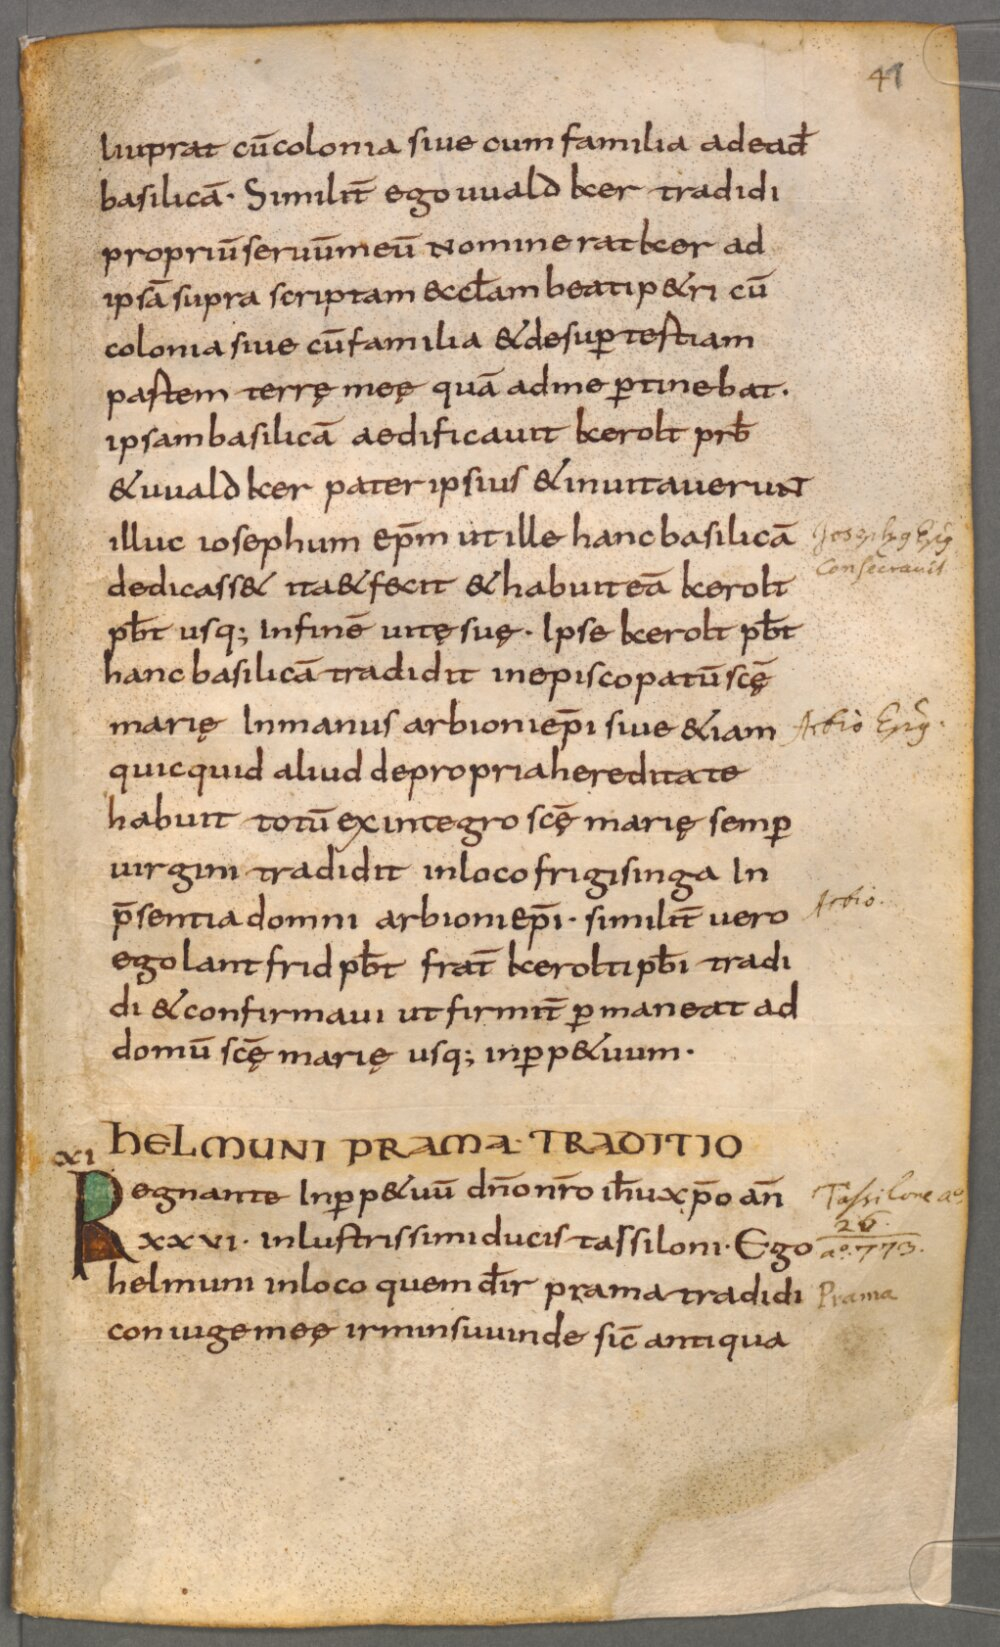 41
liuprat cū colonia sive cum familia ad ead̄
basilicā· Similit̄ ego uualdker tradidi
propriū seruū meū nomine ratker ad
ipsā supra scriptam eccl̄am beati p&ri cū
colonia sive cū familia & desup̱ testiam
pastem terrę meę quā ad me p̱tinebat·
ipsam basilicā aedificauit kerolt prb̄
& uualdker pater ipsius & inuitauerunt
illuc iosephum ep̄m ut ille hanc basilicā
Josephus Ep̄s
Consecravit
dedicass& ita & fecit & habuit eā kerolt
pb̄t usq; In finē uitę suę· Ipse kerolt pb̄t
hanc basilicā tradidit in episcopatū sc̄ę
marię In manus arbioni ep̄i sive &iam
Arbio Ep̄s.
quicquid aliud de propria hereditate
habuit totū ex integro sc̄ę marię semp̱
uirgini tradidit in loco frigisinga In
p̄sentia domni arbioni ep̄i· similit̄ uero
Arbio.
ego lantfrid pb̄t frat̄ kerolti pb̄i tradi
di & confirmaui ut firmit̄ p̱maneat ad
domū sc̄ę marię usq; in p̱p&uum·
XI HELMUNI PRAMA· TRADITIO
Regnante In p̱p&uū dn̄o nr̄o ih̄u xp̄o an̄
Tassilone ao.
26.
XXVI· inlustrissimi ducis tassiloni· Ego
ao. 773.
helmuni in loco quem dr̄ prama tradidi
Prama
coniuge meę irminsuuinde sic̄ antiqua